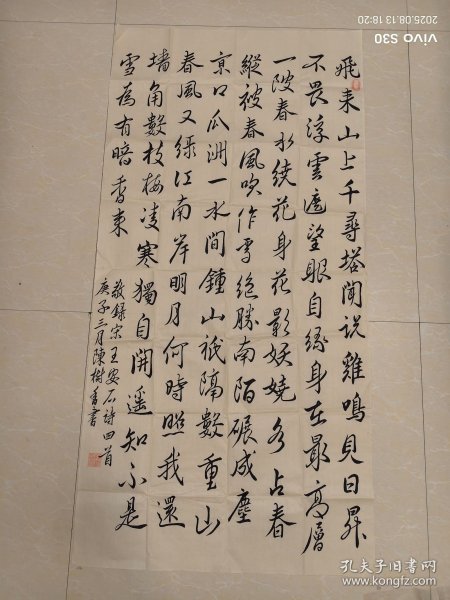 飛来山上千尋塔聞説雞鳴見日昇
不畏浮雲遮望眼自緣身在最高層
一陂春水繞花身花影妖嬈各占春
縱被春風吹作雪絕勝南陌碾成塵
京口瓜洲一水間鍾山祇隔數重山
春風又綠江南岸明月何時照我還
墻角數枝梅凌寒獨自開遥知不是
雪為有暗香来
敬録宋王安石詩四首
庚子三月陳樹香書
2025.08.13 18:20
vivo S30
孔夫子旧书网
www.kongfz.com